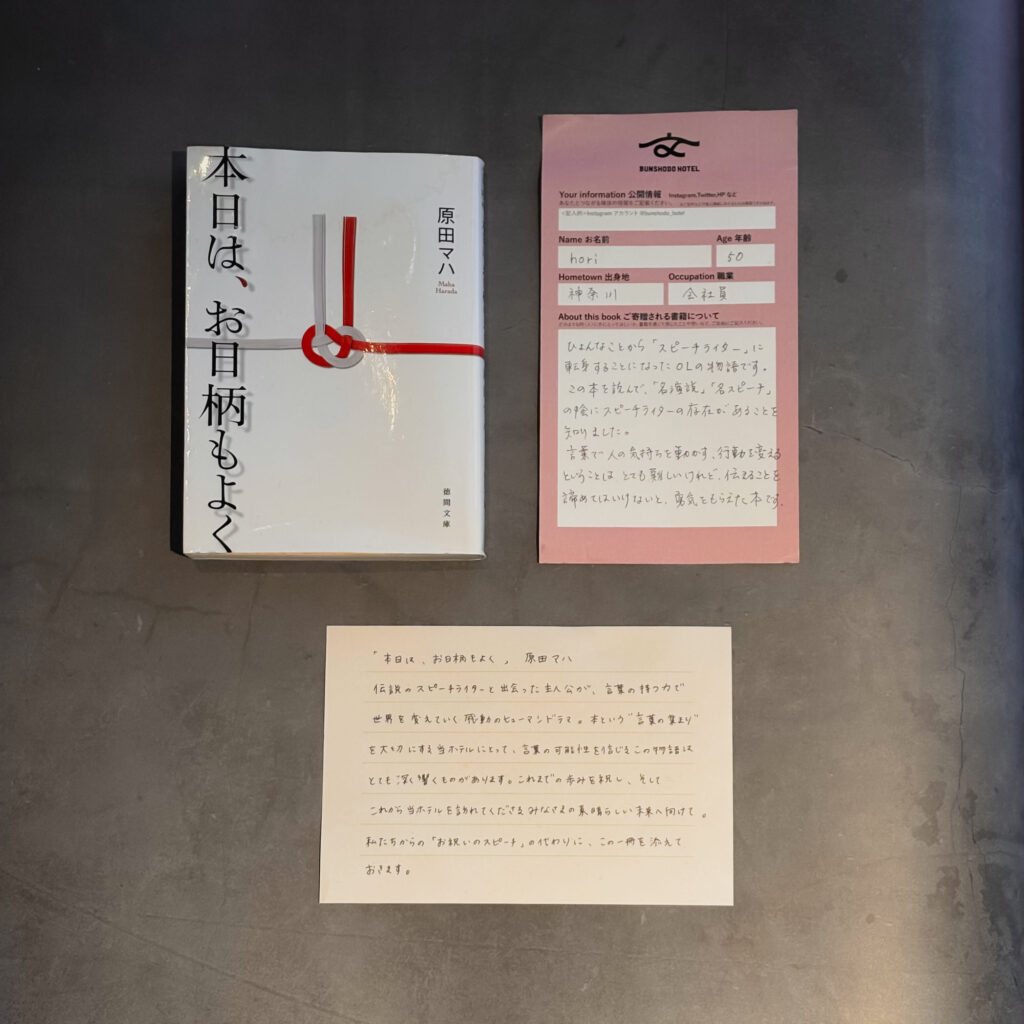 本日は、お日柄もよく
原田マハ
Maha
Harada
徳間文庫
BUNSHODO HOTEL
Your information 公開情報 Instagram,Twitter,HP など
<記入例>Instagram アカウント @bunshodo_hotel
Name お名前
Age 年齢
hori
50
Hometown 出身地
Occupation 職業
神奈川
会社員
About this book ご寄贈される書籍について
ひょんなことから「スピーチライター」に
転身することになったOLの物語です。
この本を読んで、「名演説」「名スピーチ」
の陰にスピーチライターの存在があることを
知りました。
言葉で人の気持ちを動かす、行動を変える
ということはとても難しいけれど、伝えることを
諦めてはいけないと、勇気をもらえた本です。
「本日は、お日柄もよく」 原田マハ
伝説のスピーチライターと出会った主人公が、言葉の持つ力で
世界を変えていく感動のヒューマンドラマ。本という"言葉の集まり"
を大切にする当ホテルにとって、言葉の可能性を信じるこの物語は
とても深く響くものがあります。これまでの歩みを祝し、そして
これから当ホテルを訪れてくださるみなさまの素晴らしい未来へ向けて。
私たちからの「お祝いのスピーチ」の代わりに、この一冊を添えて
おきます。